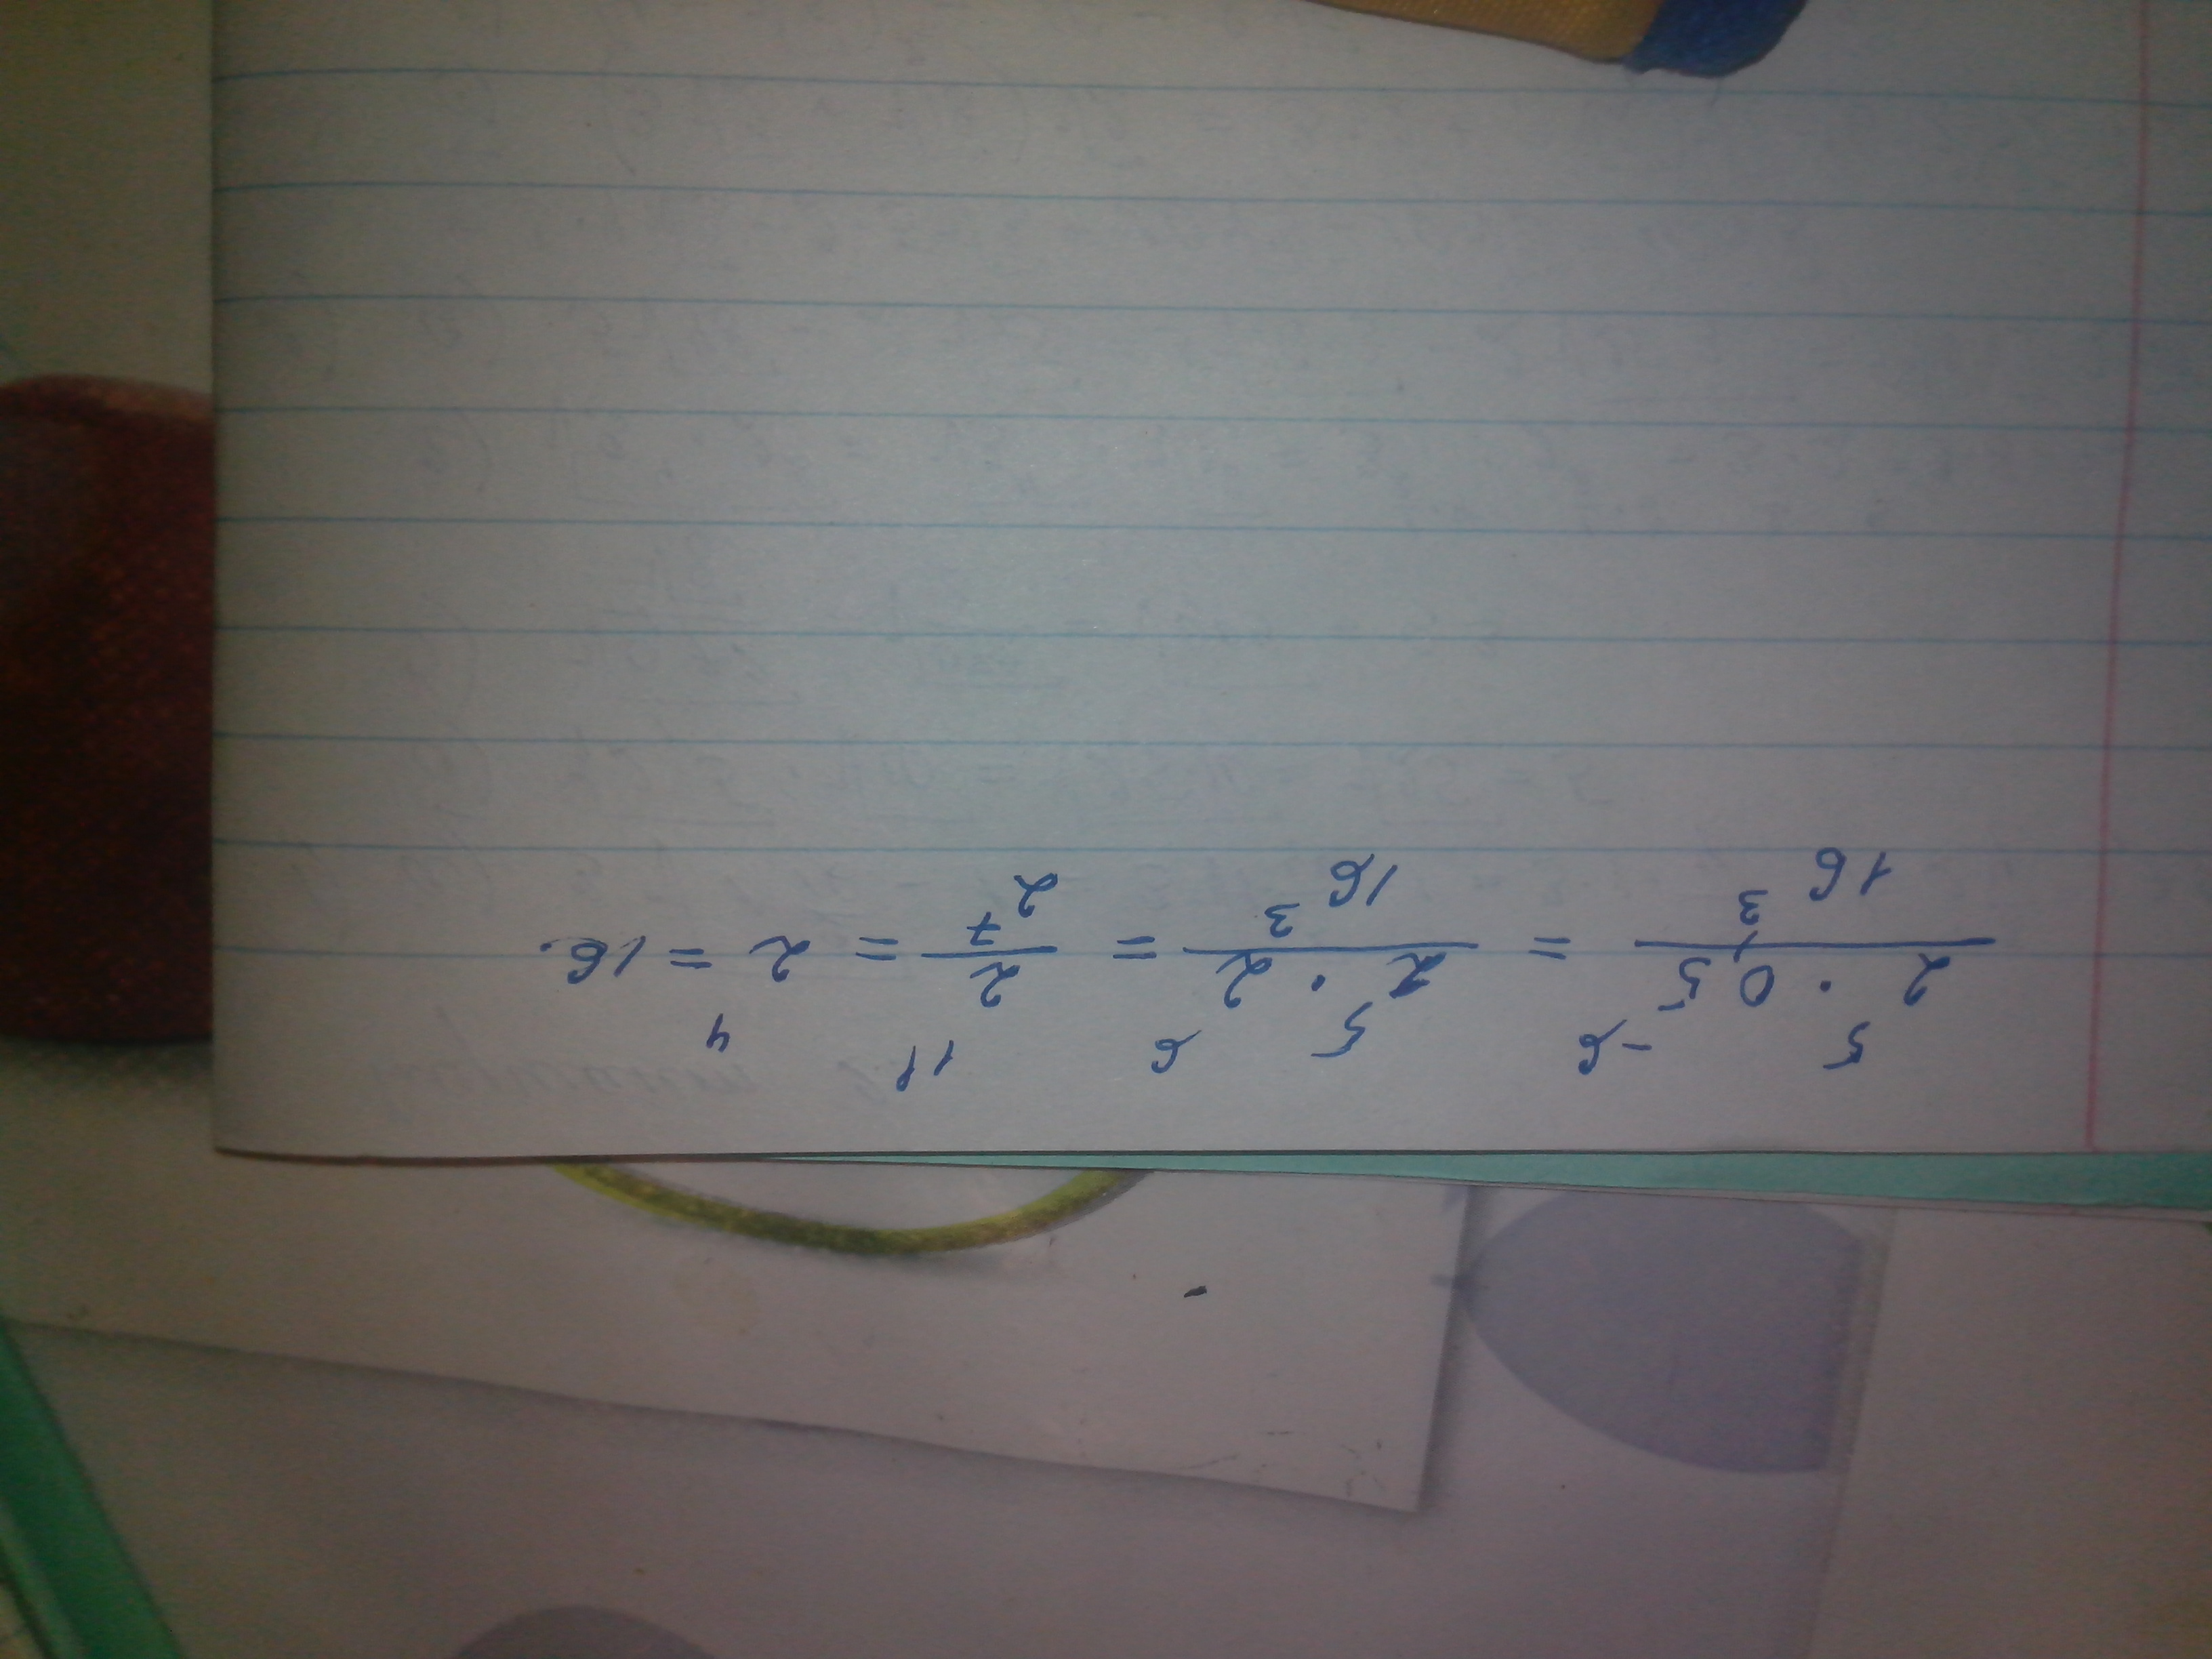 2⁵ · 0,5⁻⁶ / 16³ = 2⁵ · 2⁶ / 16³ = 2¹¹ / 2⁷ = 2⁴ = 16.